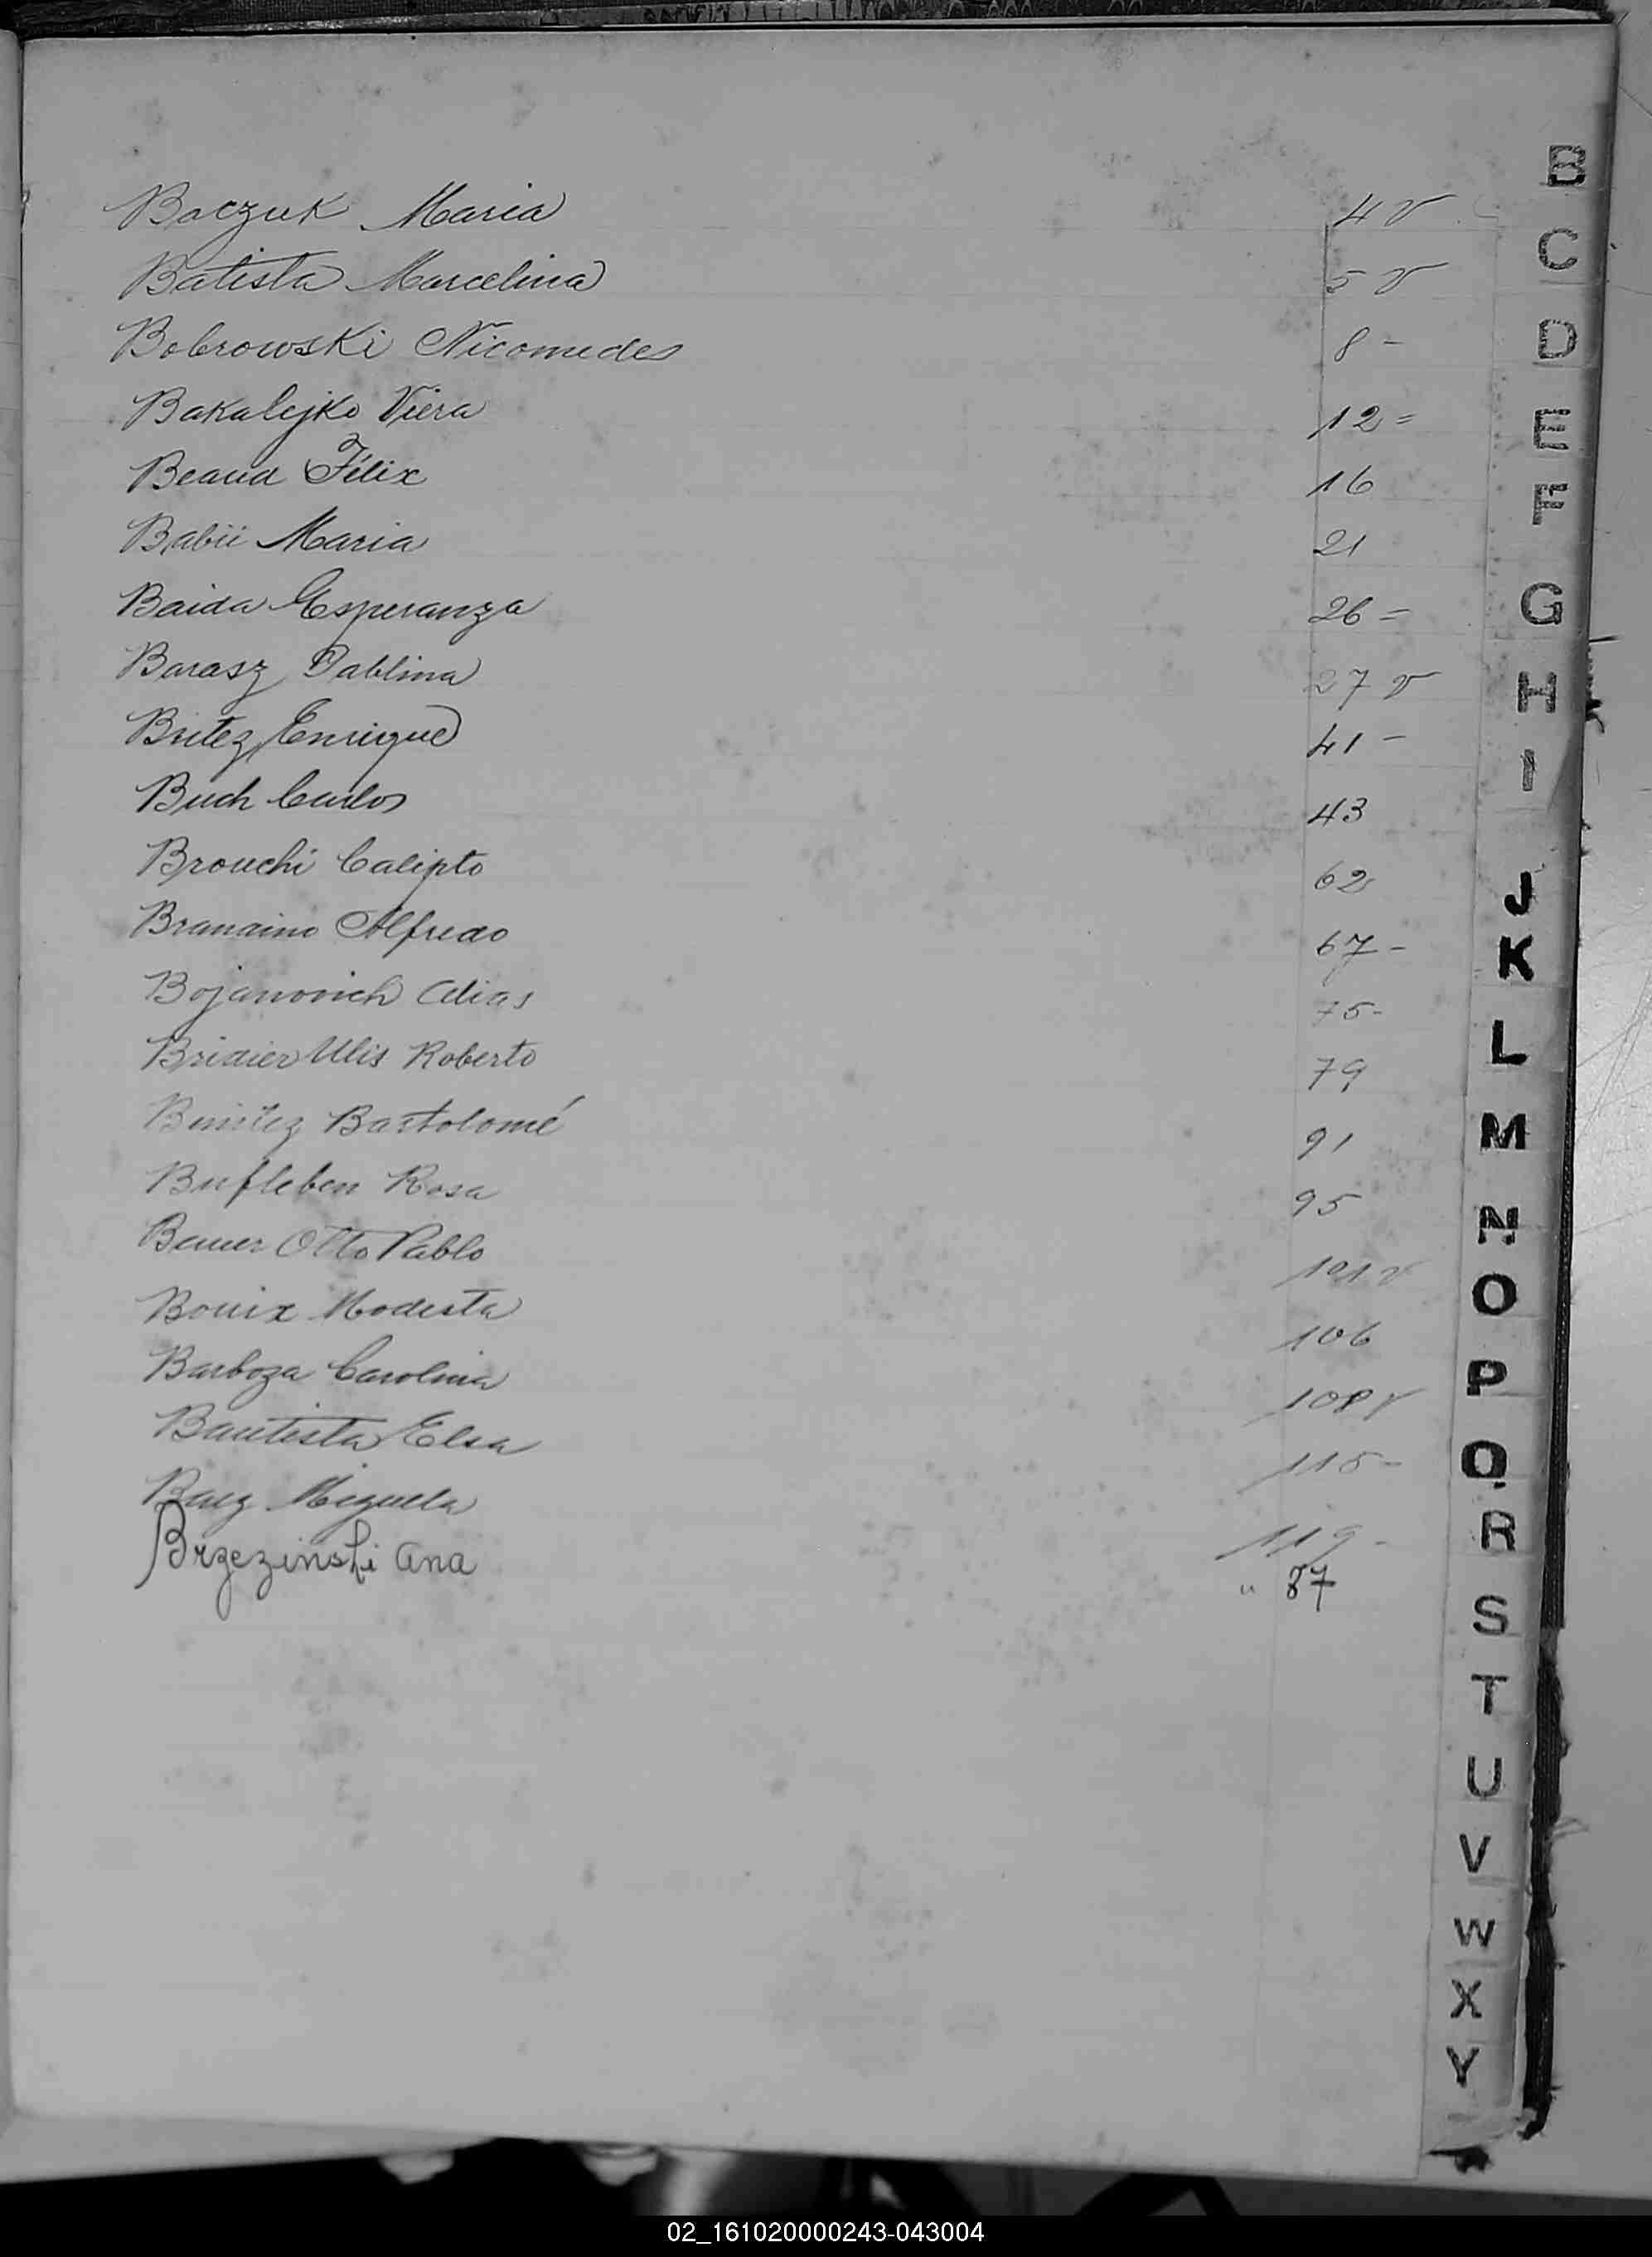 Baczuk Maria 4 v
Batista Marcelina 5 v
Bobrowski Nicomedes 8 -
Bakalejko Viera 12 =
Beaud Félix 16
Babii Maria 21
Baida Esperanza 26 =
Barasz Pablina 27 v
Britez Enrique 41 -
Buch Carlos 43
Brouchi Calipto 62
Brandino Alfredo 67 -
Bojanovich Elias 75 -
Bridier Ulis Roberto 79
Benitez Bartolomé 91
Bufleben Rosa 95
Bauer Otto Pablo 101 v
Bouix Modesta 106
Barboza Carolina 108 v
Bautista Elsa 115 -
Baez Miguela 119 -
Brzezinski Ana " 87
B
C
D
E
F
G
H
I
J
K
L
M
N
O
P
Q
R
S
T
U
V
W
X
Y
02_161020000243-043004